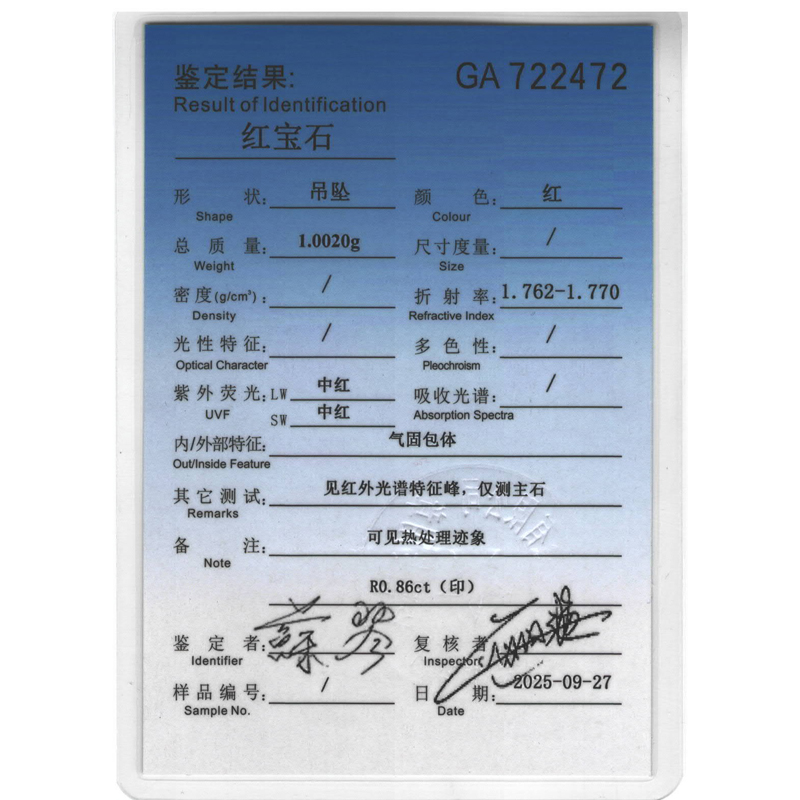 鉴定结果: GA 722472
Result of Identification
红宝石
形 状: 吊坠 颜 色: 红
Shape Colour
总 质 量: 1.0020g 尺寸度量: /
Weight Size
密度(g/cm³): / 折 射 率: 1.762-1.770
Density Refractive Index
光性特征: / 多 色 性: /
Optical Character Pleochroism
紫外荧光: LW 中红 吸收光谱: /
UVF SW 中红 Absorption Spectra
内/外部特征: 气固包体
Out/Inside Feature
其它测试: 见红外光谱特征峰，仅测主石
Remarks
备 注: 可见热处理迹象
Note
R0.86ct（印）
鉴 定 者: 复 核 者:
Identifier Inspector
样品编号: / 日 期: 2025-09-27
Sample No. Date